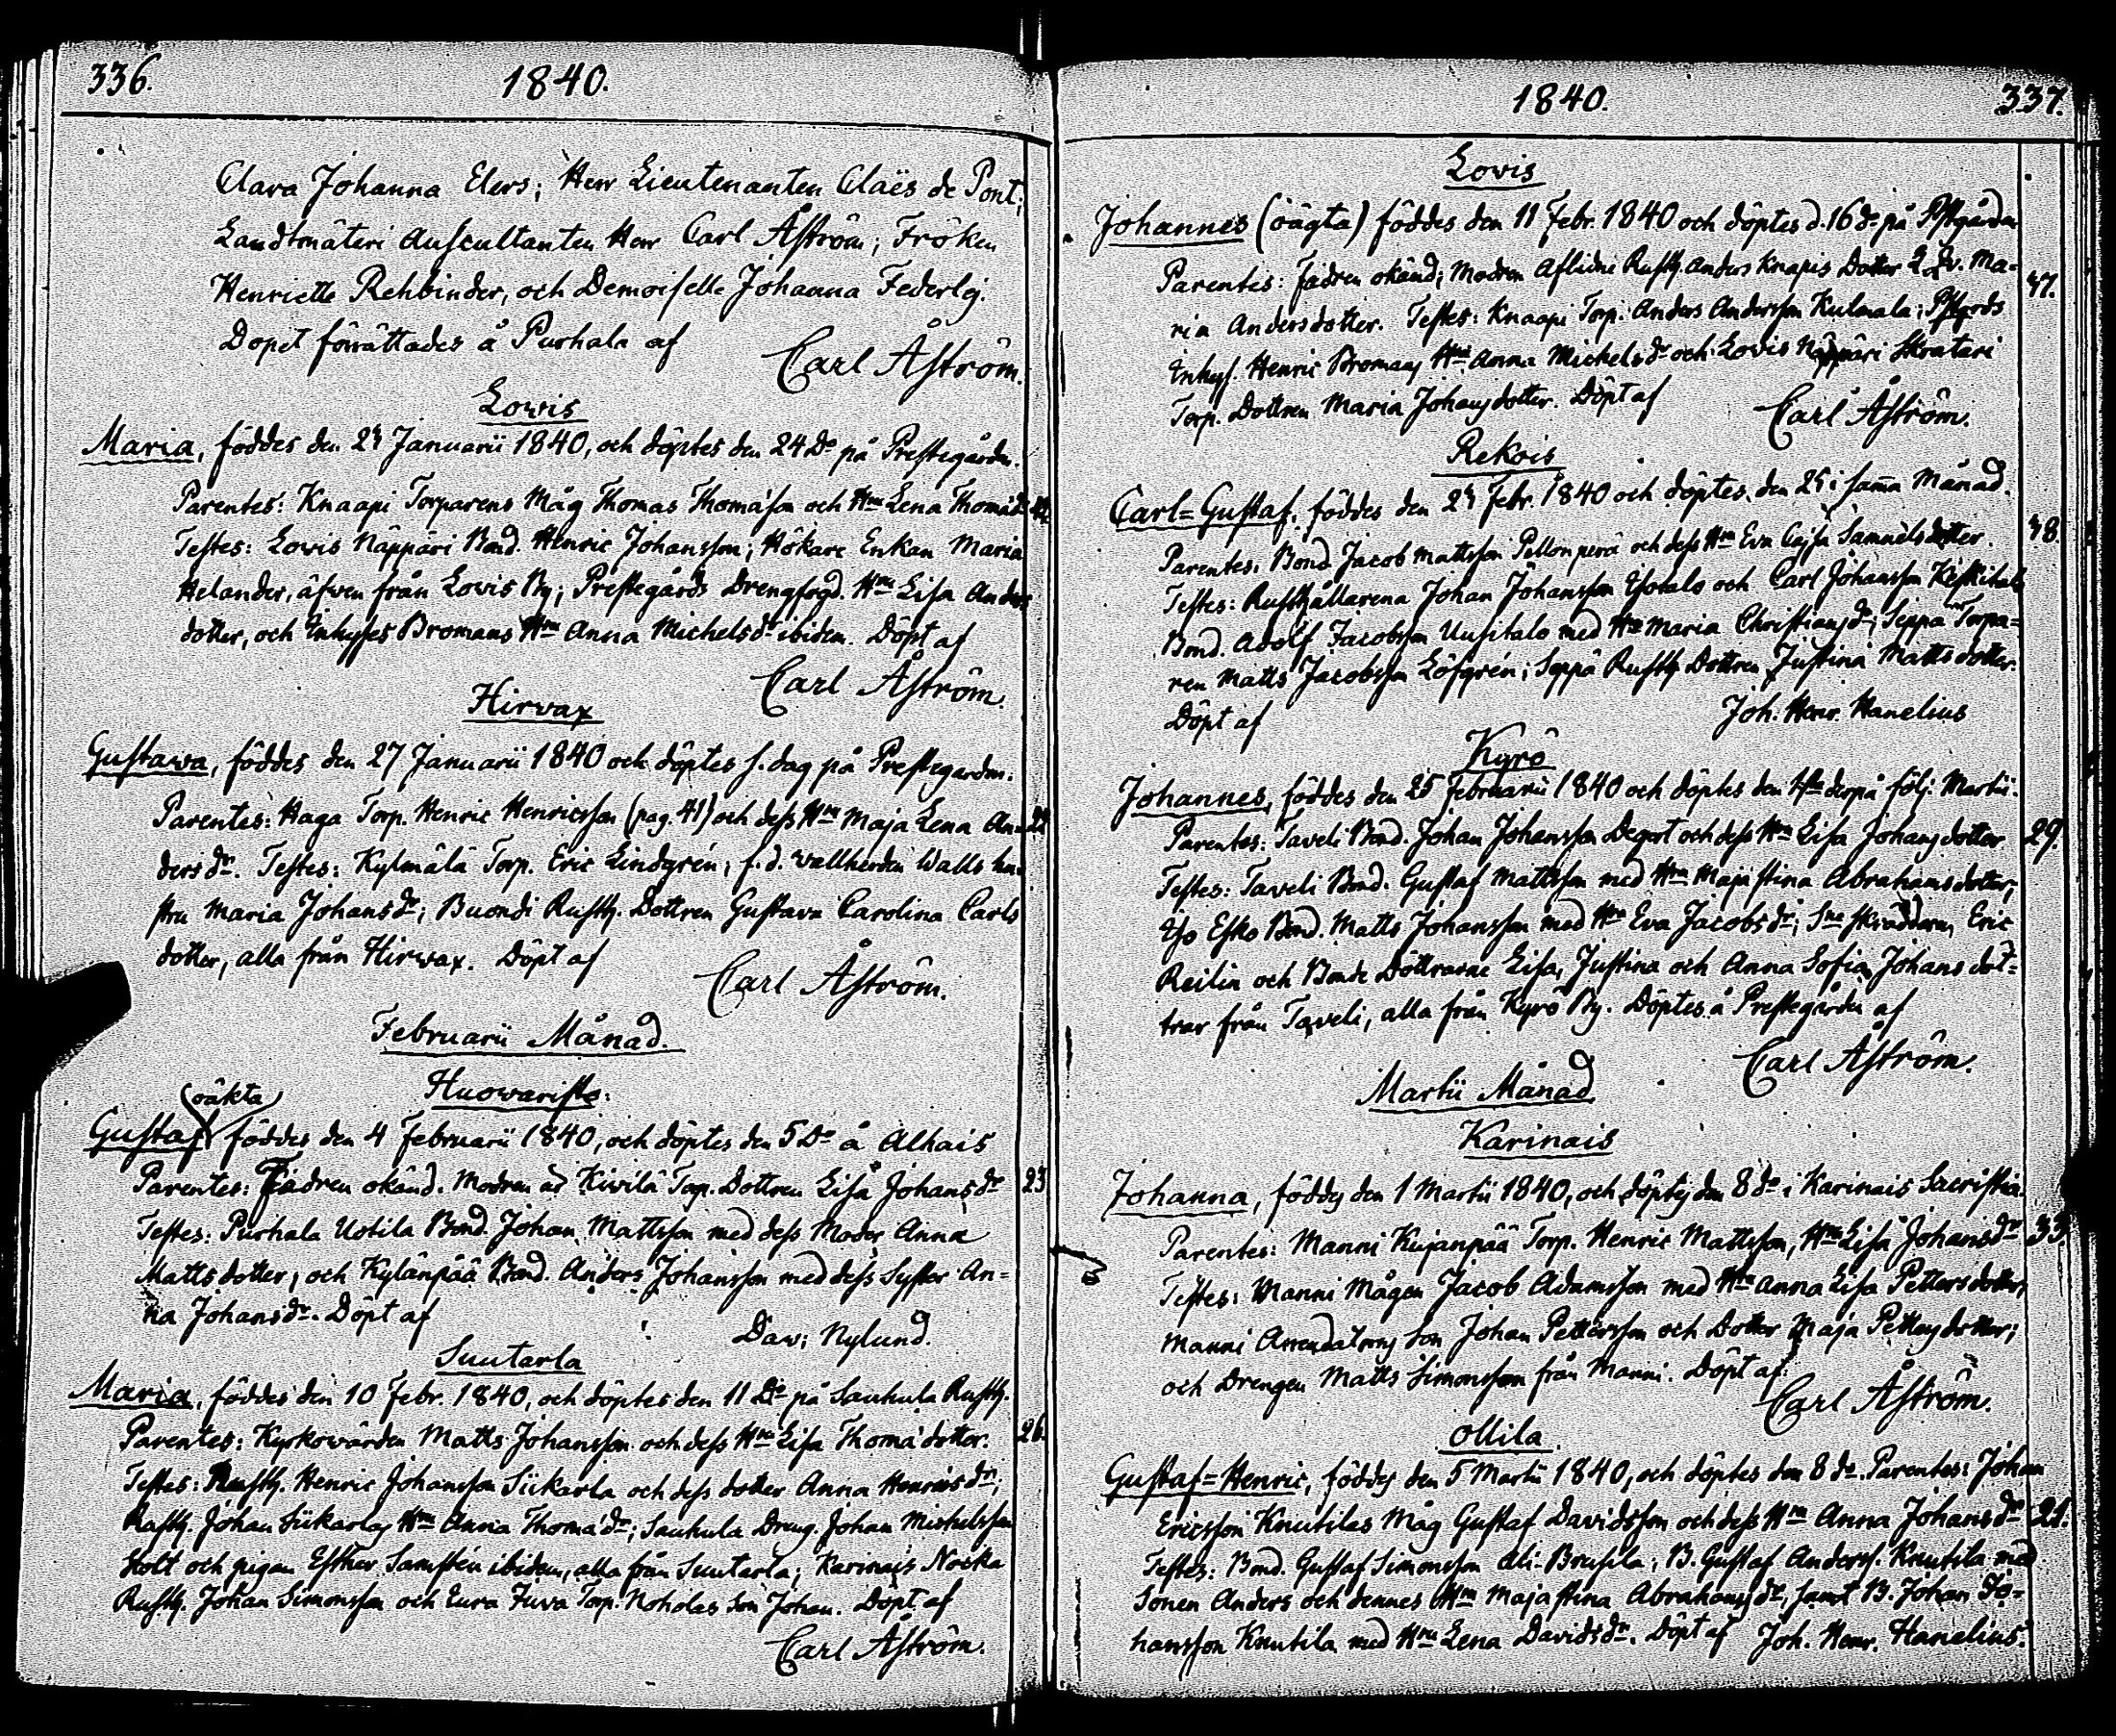 336.
1840.
Clara Johanna Elers; Herr Lieutenanten Claës de Pont;
Landtmäteri Auscultanten Herr Carl Åström; Fröken
Henriette Rehbinder, och Demoiselle Johanna Federlej.
Dopet förrättades å Purhala af
Carl Åström.
Lowis
Maria, föddes den Januarii 1840, och döptes den 24 Do på Prestegården.
Parentes: Knaapi Torparens Måg Thomas Thomasson och Hru Lena Thomæ
Testes: Lowis Näppäri Bond. Henric Johansson; Hökare Enkan Maria
Helander, äfwen från Lowis By; Prestegårds Drengfogd. Hru Lisa Anders
dotter, och Inhyses Bromans Hru Anna Michelsdr ibidem. Döpt af
Carl Åström.
Hirvax
Gustawa, föddes den 27 Januarii 1840 och döptes s. dag på Prestegården.
Parentes: Haga Torp. Henric Henricsson (pag. 41) och dess Hru Maja Lena An=
dersdr. Testes: Kylmälä Torp. Eric Lindgrén; f. d. wallherden Walls hu
stru Maria Johansdr; Buondi Rusth. Dottren Gustava Carolina Carls
dotter, alla från Hirwax. Döpt af
Carl Åström.
Februarii Månad.
Huowaristo.
(oäkta)
Gustaf föddes den 4 Februarii 1840, och döptes den 5 Do å Alhais
Parentes: Fadren okänd. Modren är Kiwilä Torp. Dottren Lisa Johansdr
23
Testes: Purhala Uotila Bond. Johan Mattsson med dess Moder Anna
Mattsdotter, och Kylänpää Bond. Anders Johansson med dess Syster An=
na Johansdr. Döpt af
Daw: Nylund.
Suutarla
Maria, föddes den 10 Febr. 1840, och döptes den 11 Do på Sauhula Rusth.
Parentes: Kyrkowärden Matts Johansson och dess Hru Lisa Thomædotter.
26.
Testes: Rusth. Henric Johansson Siikarla och dess dotter Anna Henricsdr;
Rusth. Johan Siikarlas Hru Anna Thomædr; Sauhula Dreng. Johan Michelsson
Stolt och pigan Esther Samstén ibidem, alla från Suutarla; Karinais Nocka
Rusth. Johan Simonsson och Eura Juva Torp. Noholas Son Johan. Döpt af
Carl Åström.
1840.
337.
Lovis
Johannes (oägta) föddes den 11 Febr. 1840 och döptes d. 16 do på Pstgården
Parentes: fadren okänd; Modren Aflidne Rusth. Anders Knapis Dotter Ma=
47.
ria Andersdotter. Testes: Knaapi Torp. Anders Andersson Kulmala; Pstgårds
Inhys. Henric Bromans Hru Anna Michelsdr och Lovis Näppäri
Torp. Dottren Maria Johansdotter. Döpt af
Carl Åström.
Rekois
Carl=Gustaf, föddes den Febr. 1840 och döptes den i samma Månad.
48.
Parentes: Bond Jacob Mattsson Pellonperä och dess Hru Eva Cajsa Samuelsdotter.
Testes: Rusthållarena Johan Johansson Isotalo och Carl Johansson Keskitalo
Bond. Adolf Jacobsson Uusitalo med Hru Maria Christiansdr; Seppä Torpa=
ren Matts Jacobsson Löfgrén; Seppä Rusth. Dottren Justina Mattsdotter.
Döpt af
Joh: Henr. Hanelius
Kyrö
Johannes, föddes den 25 Februarii 1840 och döptes den derpå följ: Martii.
Parentes: Taveli Bond. Johan Johansson Degert och dess Hru Lisa Johansdotter
29.
Testes: Taveli Bond. Gustaf Mattsson med Hru Maja Stina Abrahamsdotter;
Iso Esko Bond. Matts Johansson med Hru Eva Jacobsdr; Skräddaren Eric
Reilin och Bonde Döttrarne Lisa, Justina och Anna Sofia Johansdöt=
trar från Taveli, alla från Kyrö By. Döptes å Prestegården af
Carl Åström.
Martii Månad
Karinais
Johanna, föddes den 1 Martii 1840, och döptes den 8 do i Karinais Sacristia.
Parentes: Manni Kujanpää Torp. Henric Mattsson, Hru Lisa Johansdr
33
Testes: Manni Mågen Jacob Adamsson med Hru Anna Lisa Pettersdotter,
Manni Arrendatorns Son Johan Pettersson och Dotter Maja Pettersdotter;
och Drengen Matts Simonsson från Manni. Döpt af
Carl Åström.
Ollila
Gustaf=Henric, föddes den 5 Martii 1840, och döptes den 8 do. Parentes: Johan
Ericsson Knutilas Måg Gustaf Davidsson och dess Hru Anna Johansdr
21.
Testes: Bond. Gustaf Simonsson Ali-Brusila; B. Gustaf Anderss. Knutila med
Sonen Anders och dennes Hru Maja Stina Abrahamsdr, samt B. Johan Jo=
hansson Knutila med Hru Lena Davidsdr. Döpt af Joh. Henr. Hanelius.